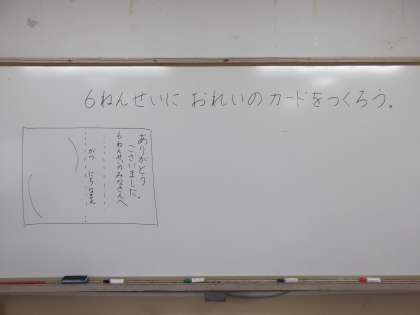 6ねんせいに おれいのカードをつくろう。
ありがとう
ございました。
6ねんせいのみなさんへ
がつ にち なまえ